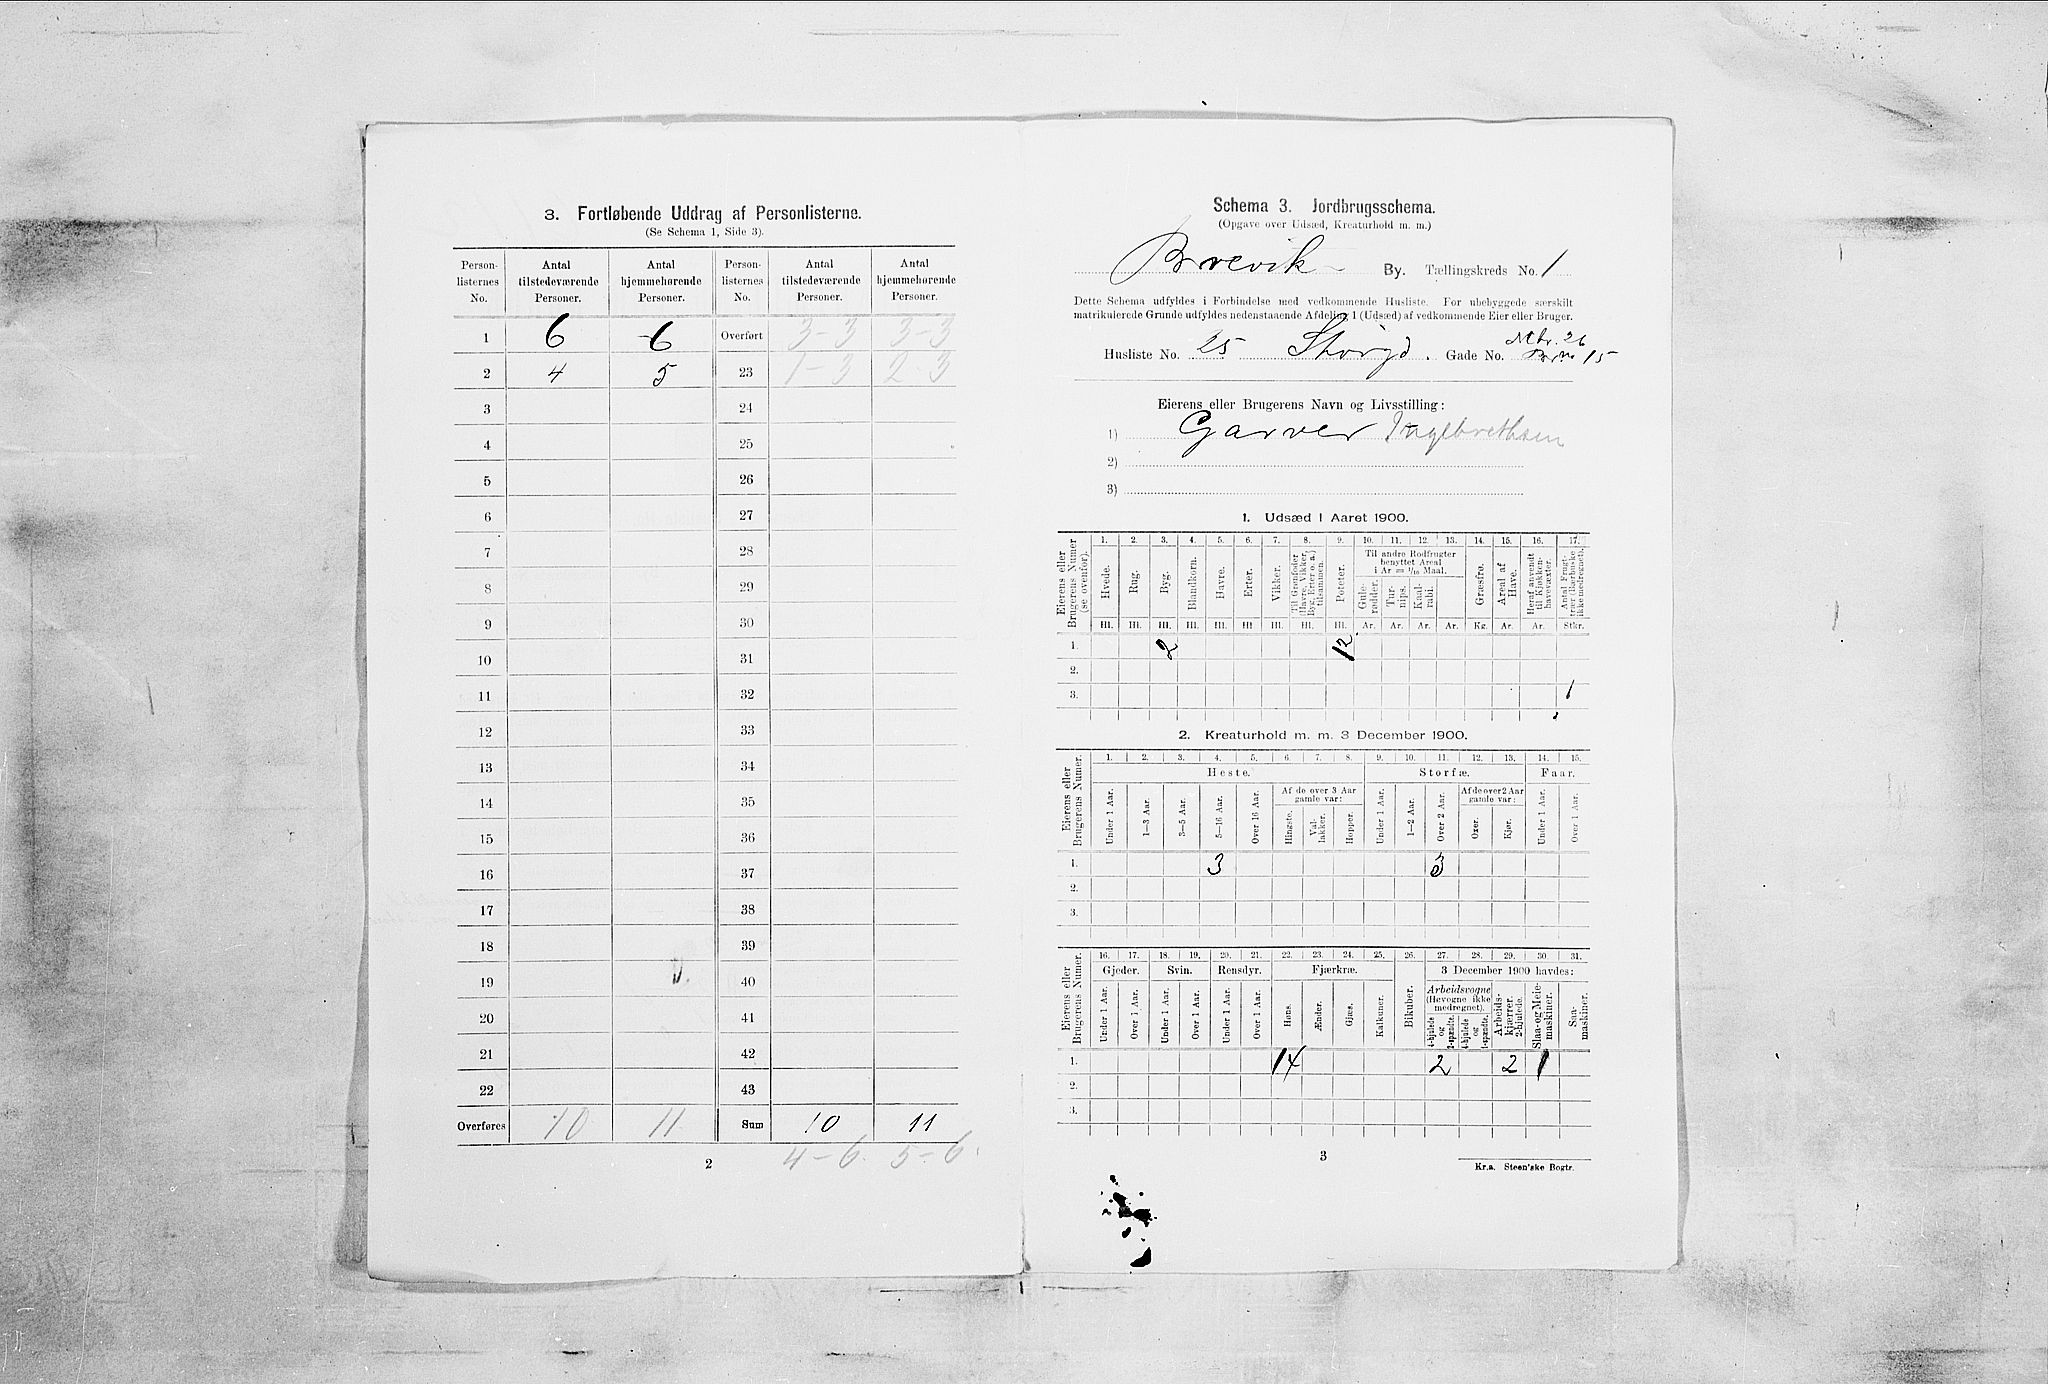 3. Fortløbende Uddrag af Personlisterne.
(Se Schema 1, Side 3).
Person-listernes No. | Antal tilstedeværende Personer. | Antal hjemmehørende Personer. | Person-listernes No. | Antal tilstedeværende Personer. | Antal hjemmehørende Personer.
1 | 6 | 6 | Overført | 3-3 | 3-3
2 | 4 | 5 | 23 | 1-3 | 2-3
3 | 24
4 | 25
5 | 26
6 | 27
7 | 28
8 | 29
9 | 30
10 | 31
11 | 32
12 | 33
13 | 34
14 | 35
15 | 36
16 | 37
17 | 38
18 | 39
19 | 40
20 | 41
21 | 42
22 | 43
Overføres | 10 | 11 | Sum | 10 | 11
4-6. 5-6.
2
Schema 3. Jordbrugsschema.
(Opgave over Udsæd, Kreaturhold m. m.)
Brevik By. Tællingskreds No. 1
Dette Schema udfyldes i Forbindelse med vedkommende Husliste. For ubebyggede særskilt
matrikulerede Grunde udfyldes nedenstaaende Afdeling 1 (Udsæd) af vedkommende Eier eller Bruger.
Mtr. 26
Husliste No. 25 Storgd. Gade No. 15
Eierens eller Brugerens Navn og Livsstilling:
1) Garver Ingebrethsen
2)
3)
1. Udsæd i Aaret 1900.
Eierens eller Brugerens Numer (se ovenfor).
1. 2. 3. 4. 5. 6. 7. 8. 9. 10. 11. 12. 13. 14. 15. 16. 17.
Til andre Rodfrugter benyttet Areal i Ar = 1/10 Maal.
Hvede. Rug. Byg. Blandkorn. Havre. Erter. Vikker. Til Grønfoder (Havre, Vikker, Byg, Erter o. a.) tilsammen. Poteter. Gulerødder. Turnips. Kaalrabi. Græsfrø. Areal af Have. Heraf anvendt til Kjøkkenhavevæxter. Antal Frugttrær (Bærbuske ikke medregnet).
Hl. Hl. Hl. Hl. Hl. Hl. Hl. Hl. Hl. Ar. Ar. Ar. Ar. Kg. Ar. Ar. Stkr.
1. 2 12
2.
3. 1
2. Kreaturhold m. m. 3 December 1900.
Eierens eller Brugerens Numer.
1. 2. 3. 4. 5. 6. 7. 8. 9. 10. 11. 12. 13. 14. 15.
Heste. Storfæ. Faar.
Af de over 3 Aar gamle var: Af de over 2 Aar gamle var:
Under 1 Aar. 1—3 Aar. 3—5 Aar. 5—16 Aar. Over 16 Aar. Hingste. Vallakker. Hopper. Under 1 Aar. 1—2 Aar. Over 2 Aar. Oxer. Kjør. Under 1 Aar. Over 1 Aar.
1. 3 3
2.
3.
Eierens eller Brugerens Numer.
16. 17. 18. 19. 20. 21. 22. 23. 24. 25. 26. 27. 28. 29. 30. 31.
Gjeder. Svin. Rensdyr. Fjærkræ. 3 December 1900 havdes:
Arbeidsvogne (Høvogne ikke medregnet).
Under 1 Aar. Over 1 Aar. Under 1 Aar. Over 1 Aar. Under 1 Aar. Over 1 Aar. Høns. Ænder. Gjæs. Kalkuner. Bikuber. 4-hjulede og 2-spændte. 4-hjulede og 1-spændte. Arbeids-kjærrer, 2-hjulede. Slaa- og Meie-maskiner. Saa-maskiner.
1. 14 2 2 1
2.
3.
3
Kr.a. Steen'ske Bogtr.